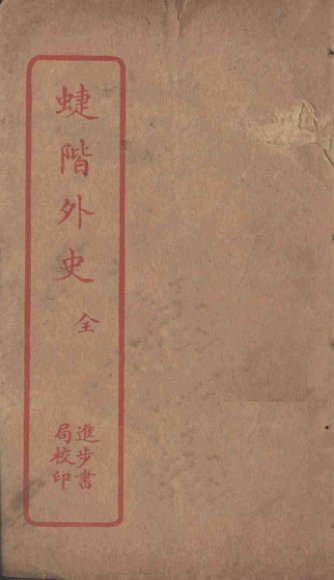 蜨階外史 全
進步書
局校印